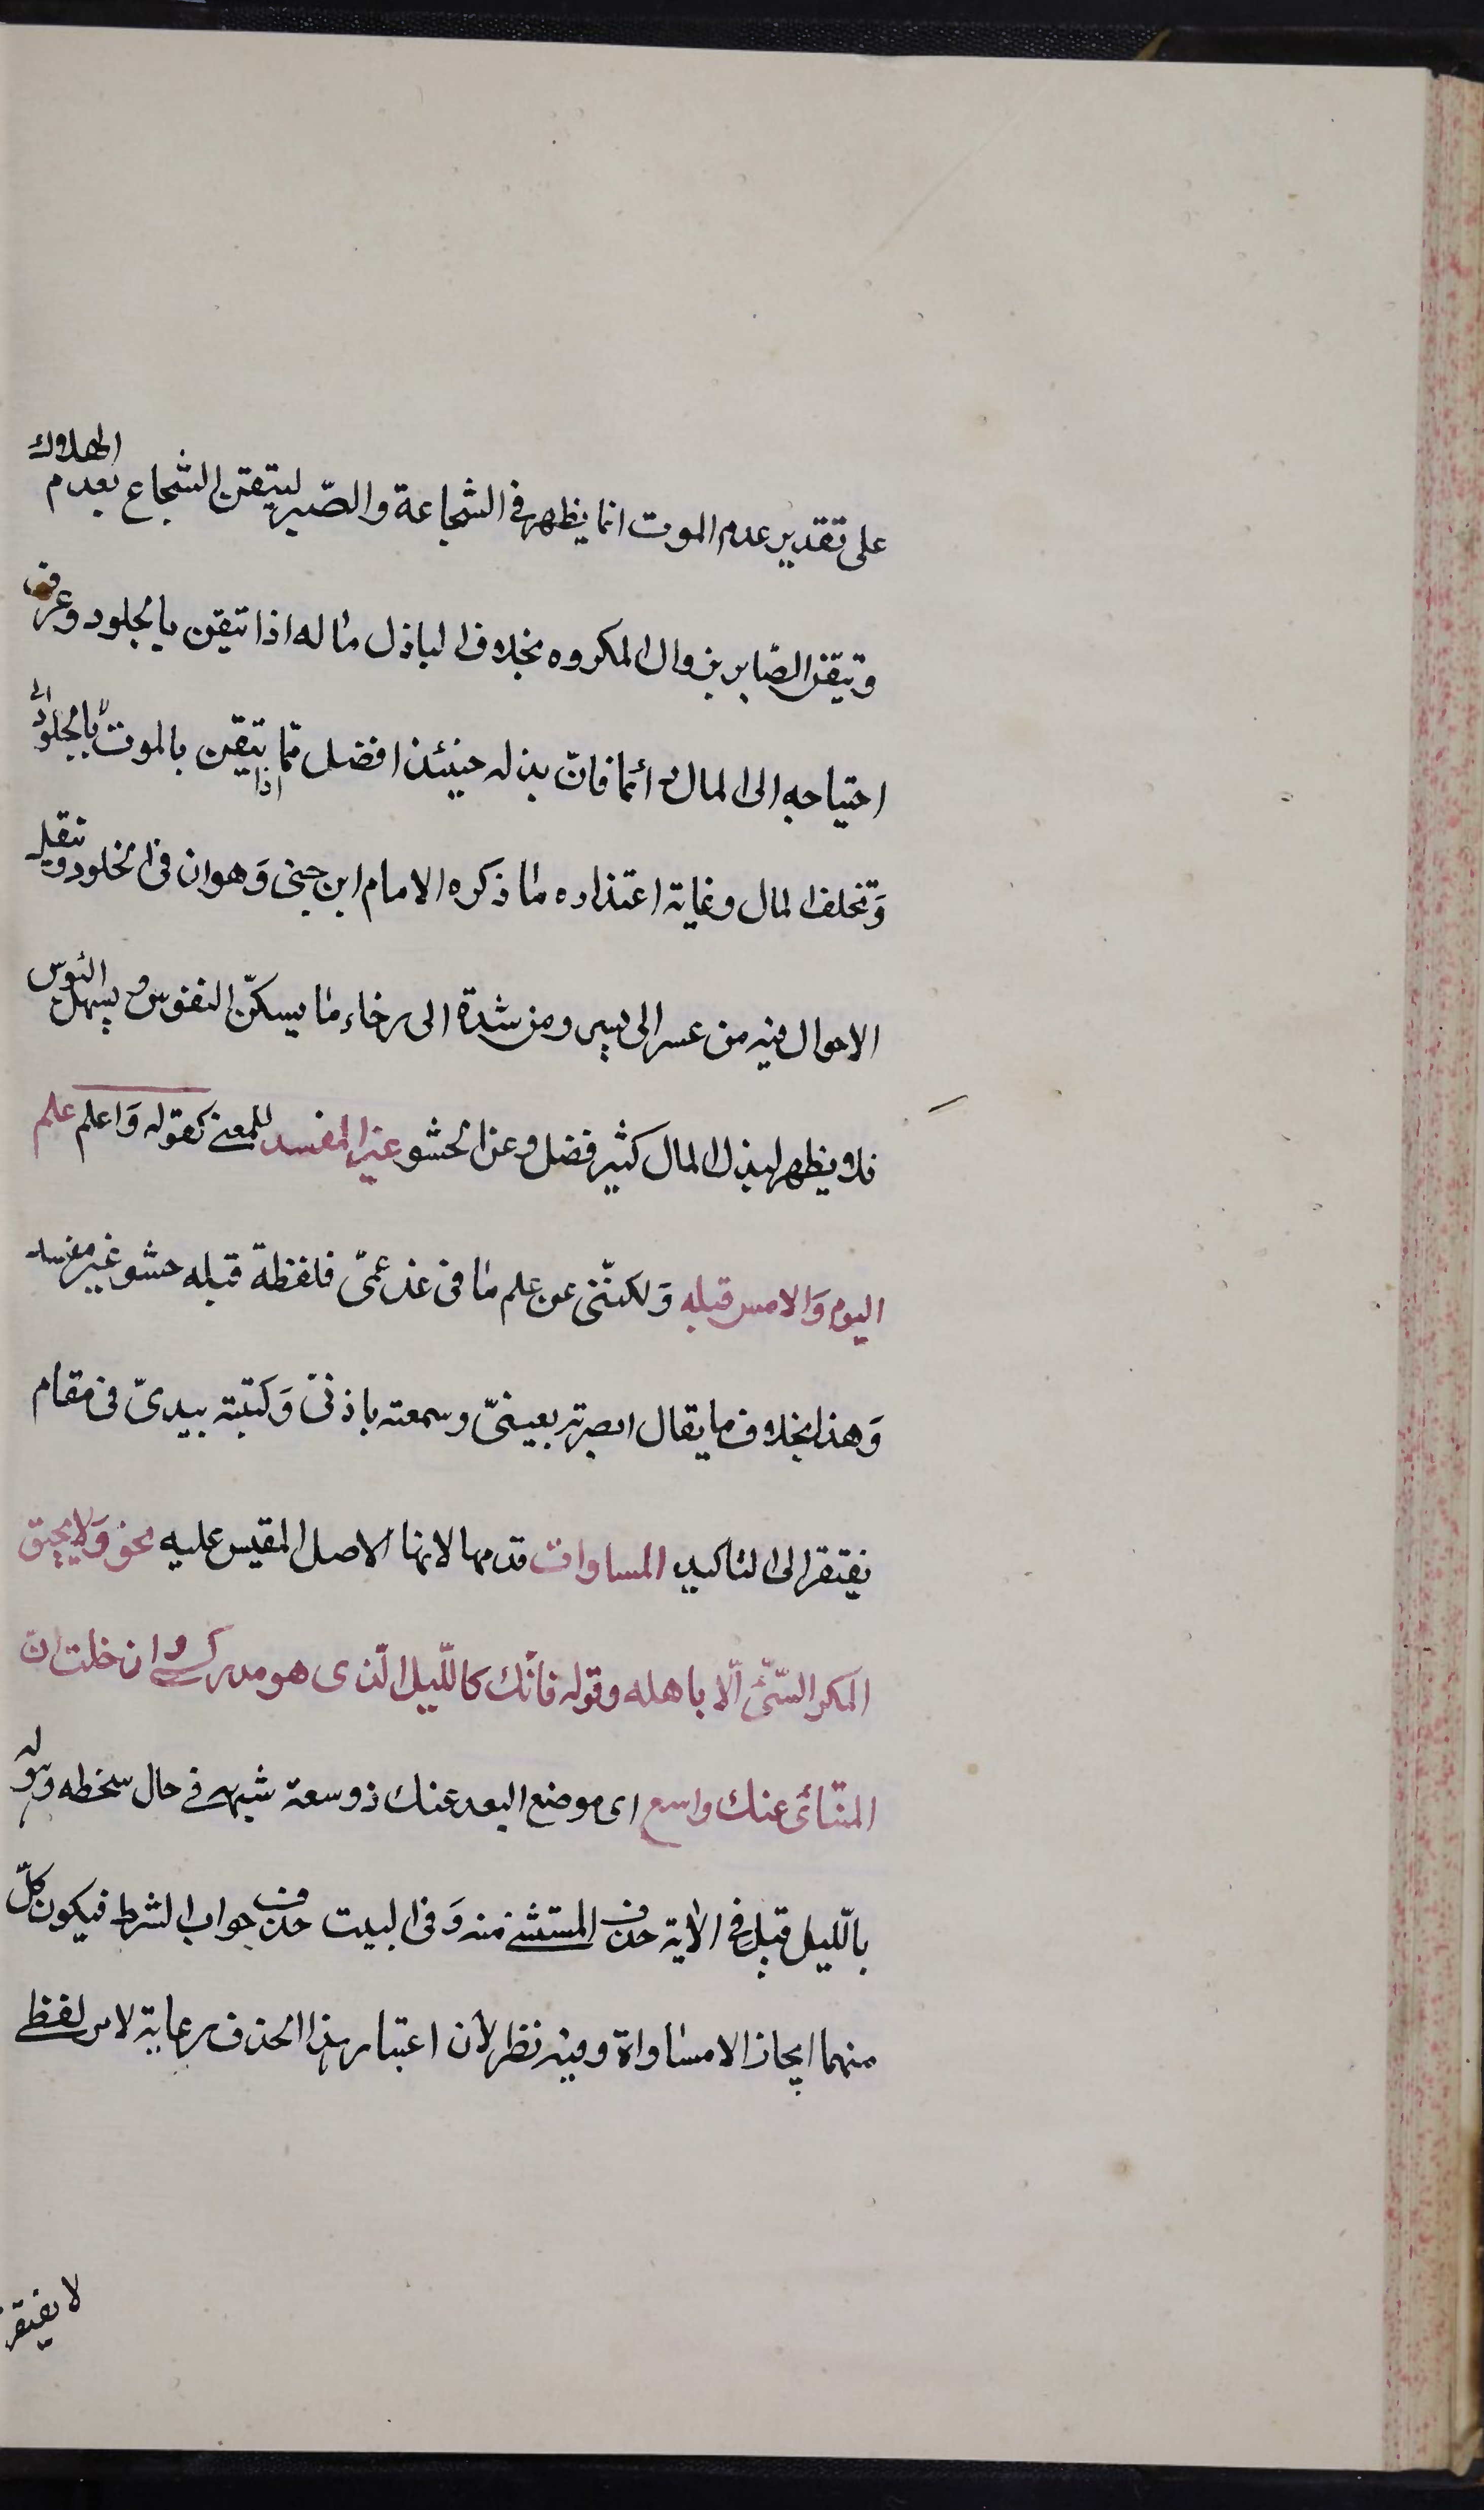 على تقدير عدم الموت انما يظهر فى الشجاعة والصّبر ليتقن الشجاع بعدم الهلاك
وتيقن الصّابر بزوال المكروه بخلاف الباذل ماله اذا تيقن بالخلود وعرف
احتياجه الى المال دائما فانّ بذله حينئذ افضل ممّا اذا تيقن بالموت بالخلود
وَتخلف المال وغاية اعتذاره ما ذكره الامام ابن جنى وَهو ان فى الخلود وتنقل
الاحوال فيه من عسر الى يسر ومن شدة الى رخاء ما يسكنّ النفوس ويسهل البؤس
فلا يظهر لبذل المال كثير فضل وعن الحشو غير المفسد للمعنى كقوله وَاعلم علم
اليوم وَالامس قبله وَلكنّنى عن علم ما فى غد عمّى فلفظة قبله حشو غير مفسد
وَهذا بخلاف ما يقال ابصرته بعينىّ وسمعته باذنىّ وَكتبته بيدىّ فى مقام
يفتقر الى التاكيد المساوات قدمها لانها الاصل المقيس عليه نحو وَلا يحيق
المكر السّيّئ الّا باهله وقوله فانّك كاللّيل الّذى هو مدركى وان خلت انّ
المنتأى عنك واسع اى موضع البعد عنك ذو سعة شبهه فى حال سخطه وهوله
باللّيل قيل فى الآية حذف المستثنى منه وَفى البيت حذف جواب الشرط فيكون كلّ
منهما ايجازا لا مساواة وفيه نظر لأن اعتبار هذا الحذف رعاية لامر لفظى
لا يفتقر